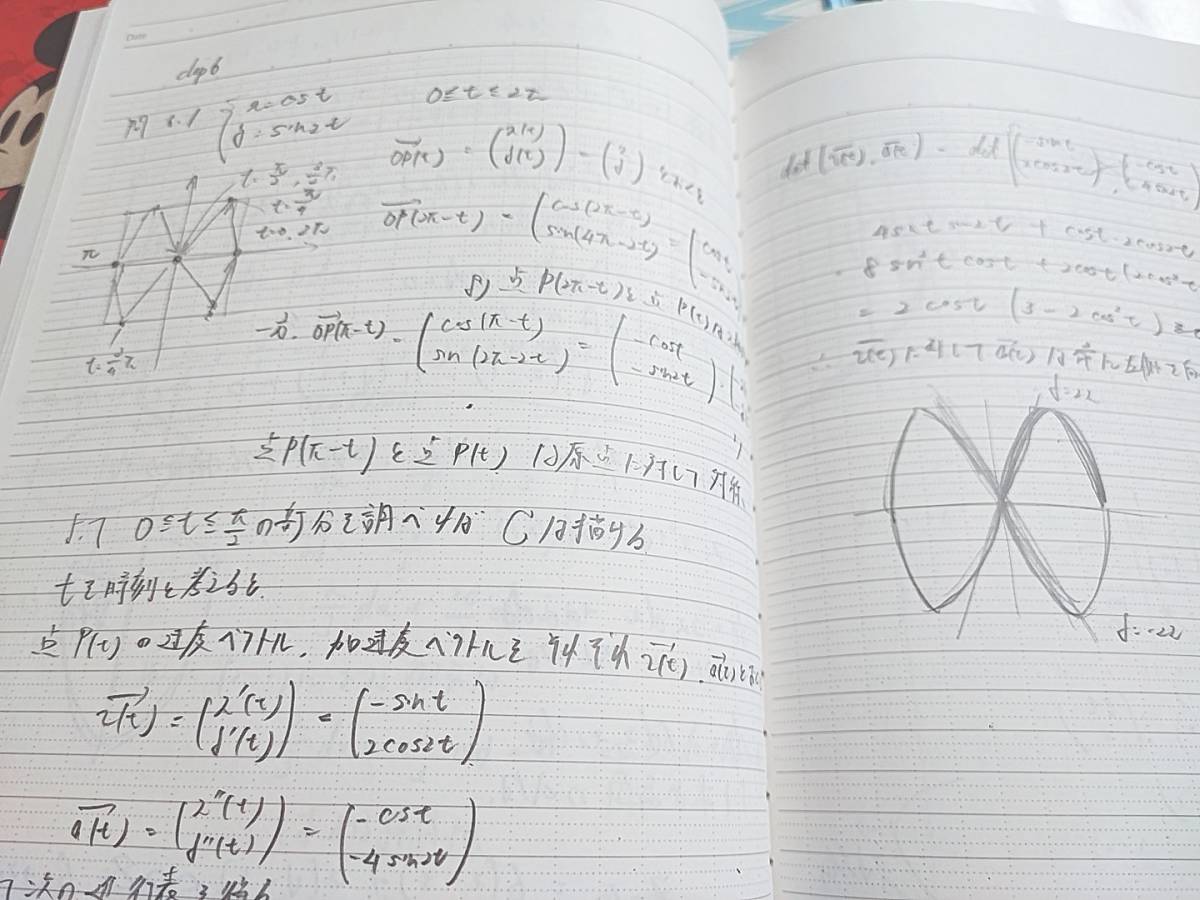 Date
chap 6
問 6.1 { x = cos t
y = sin 2t
0 ≤ t ≤ 2π
OP(t) = (x(t) y(t)) = (x y) とおくと
t = π/2, 3/2 π
t = π/4
t = 0, 2π
π
t = 3/4 π
OP(2π-t) = (cos(2π-t) sin(4π-2t)) = (cos t -sin 2t
より 点 P(2π-t) と 点 P(t) は
一方. OP(π-t) = (cos(π-t) sin(2π-2t)) = (-cos t -sin 2t)
点P(π-t) と 点 P(t) は原点に対して対称.
よって 0 ≦ t ≦ π/2 の部分を調べれば C は描ける
tを時刻と考えると
点 P(t) の速度ベクトル, 加速度ベクトルを それぞれ v(t), a(t) と
v(t) = (x'(t) y'(t)) = (-sin t 2cos2t)
a(t) = (x''(t) y''(t)) = (-cos t -4 sin 2t)
det (v(t), a(t)) = det ((-sin t 2cos2t), (-cos t -4 sin 2t)
4 sin t sin 2t + cos t · 2cos2t
= 8 sin² t cos t + 2cos t (2cos² t
= 2 cos t (3 - 2 cos² t)
∴ v(t) に対して a(t) は常に左側
y=2x
y=-2x